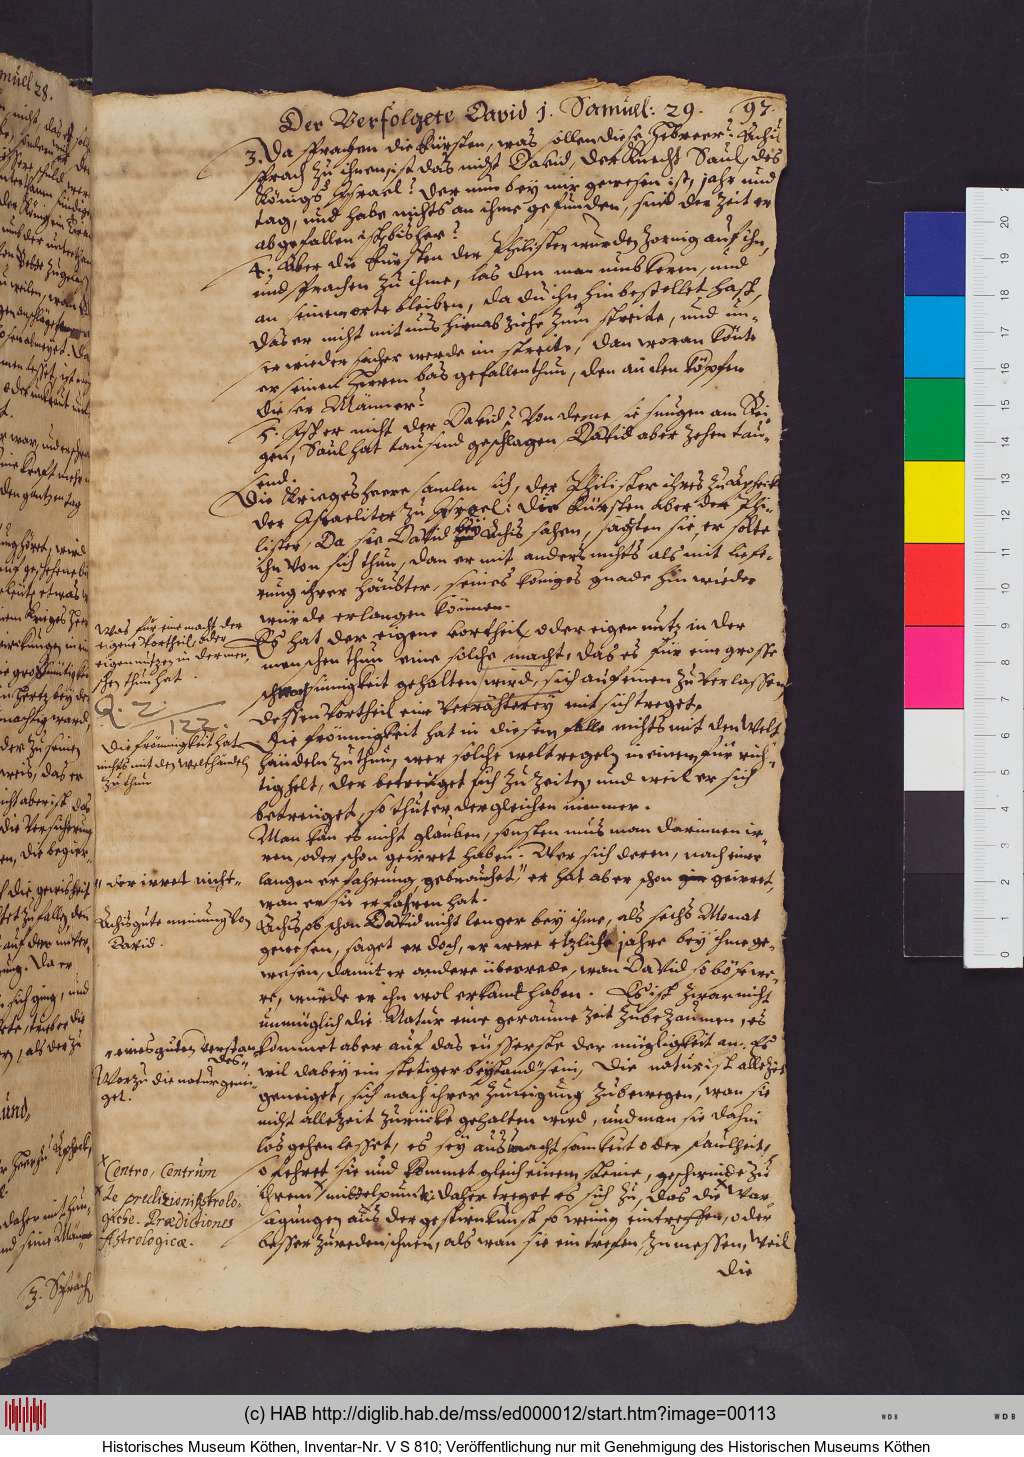 Der Verfolgete David 1. Samuel: 29. 97.
3. Da sprachen die Fürsten, was sollen diese Hebreer? Achis
sprach zu ihnen, ist das nicht David, der Knecht Saul, des
Königs Israel? der nun bey mir gewesen ist, jahr und
tag, und habe nichts an ihme gefunden, sint der Zeit er
abgefallen ist bisher?
4. Aber die Fürsten der Philister wurden zornig auf ihn,
und sprachen zu ihme, las den man umbkeren, und
an seinem orte bleiben, da du ihn hin bestellet hast,
das er nicht mit uns hinab ziehe zum streite, und un-
ser wieder sacher werde im streite, dan woran könte
er seinem Herren bas gefallen thun, den an den köpfen
dieser Männer?
5. Ist er nicht der David? Von deme sie sungen am Rei-
gen, Saul hat tausend geschlagen, David aber zehen tau-
send.
Die Kriegesheere samlen sich, der Philister ihres zu Aphek
der Israeliter zu Jsreel: Die Fürsten aber der Phi-
lister, Da sie David bey Achis sahen, sagten sie, er solte
ihn von sich thun, dan er mit anders nichts als mit liefe-
rung ihrer häubter, seines königes gnade hin wieder
würde erlangen können.
Es hat der eigene vortheil oder eigen nutz in der
menschen thun eine solche macht, das es für eine grosse
sinnigkeit gehalten wird, sich auf einen zu verlassen
dessen Vortheil eine Verrähterey mit sich treget,
Die frommigkeit hat in diesem falle nichts mit den Welt
händeln zu thun, wer solche weltregeln in einem für rich-
tig helt, der betreüget sich zu Zeiten, und weil er sich
betreüget, so thut er dergleichen nimmer.
Man kan es nicht glauben, sonsten mus man darinnen ir-
ren, oder schon geirret haben. Wer sich deren, nach einer
langen erfahrung, gebrauchet, er hat aber schon geirret,
wan er sie erfahren hat.
Achis, ob schon David nicht lenger bey ihme, als sechs Monat
gewesen, saget er doch, er were etzliche jahre bey ihme ge-
wesen, damit er andere überrede, wan David so böse we-
re, würde er ihn wol erkant haben. Es ist zwar nicht
unmüglich die Natur eine geraume Zeit zu bezäumen, es
kommet aber auf das eüsserste der mügligkeit an. Es
wil dabey ein stetiger beystand sein, die natur ist allezeit
geneiget, sich nach ihrer zuneigung zu bewegen, wan sie
nicht allezeit zurücke gehalten wird, und man sie dahin
los gehen lesset, es sey aus unachtsamkeit oder faulheit,
so kehret sie und kommet gleich einem steine, geschwinde zu
ihrem mittelpunct: daher treget es sich zu, das die War-
sagungen aus der gestirnkunst so wenig eintreffen, oder
besser zu reden, ihnen, als wan sie eintrefen, zumessen, weil
die
Was für eine macht der
eigene Vortheil, oder
eigen nutzen in der men-
schen thun hat.
Q. 2.
122.
Die frömmigkeit hat
nichts mit den welthändeln
zu thun
" der irret nicht-
Achis gute meinung von
David.
" eines guten verstan-
des-
Worzu die natur genei-
get.
x Centro, Centrum
x Le predizioni Astrolo-
giche. Prædictiones
Astrologicæ.
3. Sprach
(c) HAB http://diglib.hab.de/mss/ed000012/start.htm?image=00113
Historisches Museum Köthen, Inventar-Nr. V S 810; Veröffentlichung nur mit Genehmigung des Historischen Museums Köthen